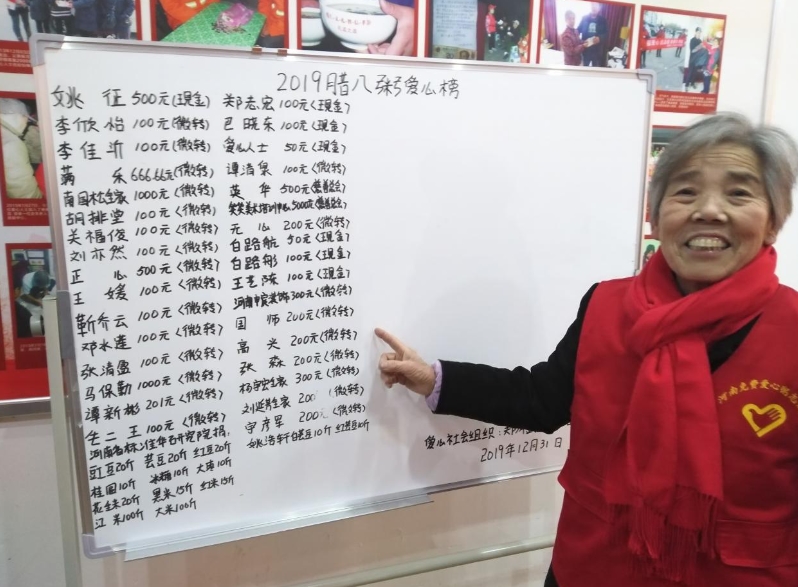 2019腊八粥爱心榜
姚 征 500元(现金)
李欣怡 100元(微转)
李佳沂 100元(微转)
禾 666.66元(微转)
1000元(微转)
胡排堂 100元(微转)
关福俊 100元(微转)
刘亦然 100元(微转)
正 心 500元(微转)
王 媛 100元(微转)
靳乔云 100元(微转)
邓水莲 100元(微转)
张清盈 100元(微转)
马保勤 1000元(微转)
谭新彬 201元(微转)
生二王 100元(微转)
郑志宏 100元(现金)
巴晓东 100元(现金)
爱心人士 50元(现金)
谭清泉 100元(微转)
英华 500元
5000元
元 心 200元(微转)
白路航 50元(现金)
白路彤 100元(现金)
王艺陈 100元(现金)
300元(微转)
国 师 200元(微转)
高 兴 200元(微转)
张 森 200元(微转)
300元(微转)
200元(微转)
申彦军 200元(微转)
姚浩轩白芸豆10斤 红芸豆10斤
豇豆20斤 芸豆20斤 红豆20斤
桂圆10斤 10斤 大枣10斤
花生米20斤 黑米15斤 红米15斤
江米100斤 大米100斤
爱心社会组织:
2019年12月31日
河南免费爱心粥